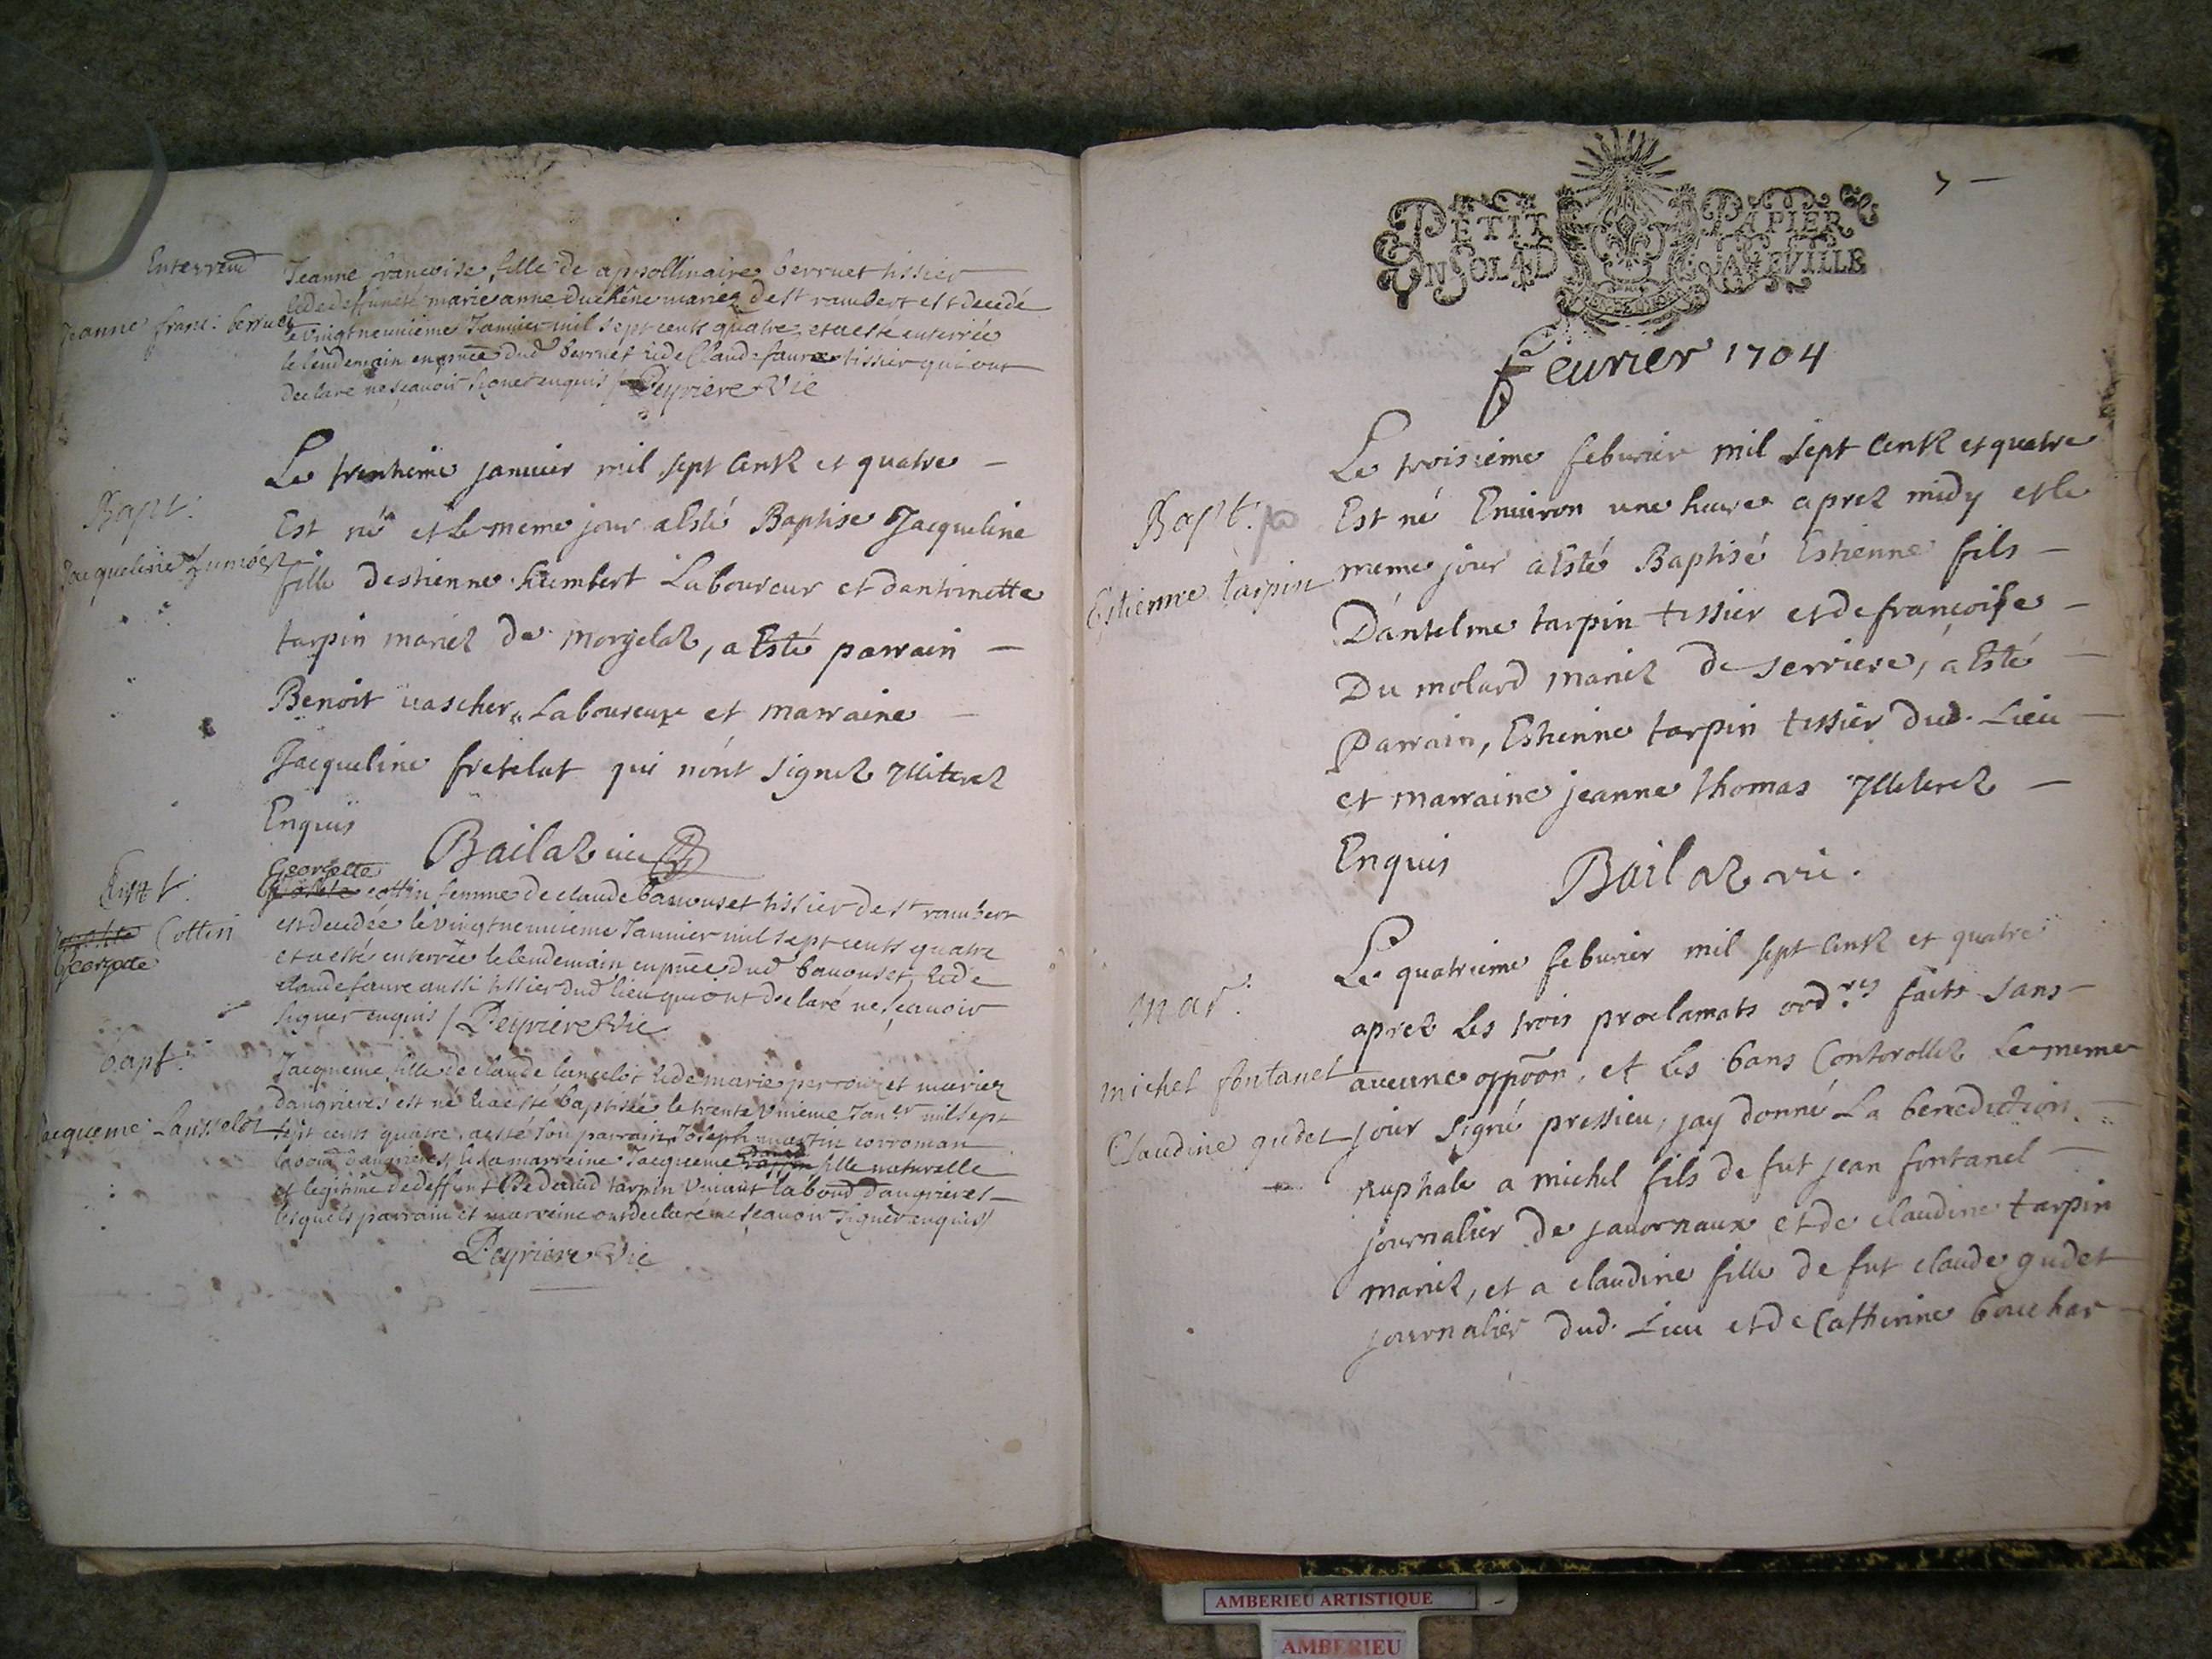 Enterremt
Jeanne franc: berruet
Jeanne francoise fille de appollinaire berruet tissier
& de deffuncte marie anne duchêne mariez de st rambert est decedé
le vingt neuuiéme Januier mil sept cents quatre et a esté enterrée
le lendemain en pnce dud berruet & de Claude faure tissier qui ont
declaré ne sçauoir signer enquis / Peyriere Vic
Bapt.
Jacqueline humbert
Le trentieme januier mil sept Centz et quatre
Est né et le meme jour a Esté Baptise Jacqueline
fille destienne humbert Laboureur et dantoinette
tarpin mariez de morgelaz, a Esté parrain
Benoit uascher Laboureur et marraine
Jacqueline fretelat qui n'ont signez Jlliterez
Enquis
Bailaz uic
Entt.
Cottin
Georgette
Georgette
cottin femme de claude bauouset tissier de st rambert
est decedée le vingt neuuieme Januier mil sept cents quatre
et a esté enterrée le lendemain en pnce dud bauouset, & de
claude faure aussi tissier dud lieu qui ont declaré ne sçauoir
signer enquis / Peyriere Vic
bapt.
Jacqueme Lansselot
Jacqueme fille de claude lancelot & de marie perrouzet mariez
dangrieres est né & a esté baptisée le trente vnieme Janer mil sept
sept cents quatre, a esté son parrain Joseph martin corroman
labour dangrieres, & sa marraine Jacqueme fille naturelle
et legitime de deffunt tarpin viuant labour dangrieres
lesquels parrain et marreine ont declaré ne sçauoir signer enquis /
Peyriere Vic
PETIT PAPIER
UN SOL 4 D LA FEUILLE
feurier 1704
Bapt.
Estienne tarpin
Le troisieme feburier mil sept Centz et quatre
Est né Enuiron une heure aprez midy et le
meme jour a Esté Baptisé Estienne fils
Dantelme tarpin tissier et de francoise
Du molard mariez de serriere, a Esté
Parrain, Estienne tarpin tissier dud. Lieu
et marraine jeanne thomas Jlliterez
Enquis
Bailaz vic.
mar.
michel fontanel
Claudine gudet
Le quatrieme feburier mil sept Centz et quatre
aprez les trois proclamats ordres faits sans
aucune oppoon, et les bans Controllez le meme
jour signé pressieu, jay donné La benediction
nuptiale a michel fils de fut jean fontanel
journalier de jauornaux et de claudine tarpin
mariez, et a claudine fille de fut claude gudet
journalier dud. Lieu et de Catherine bouchar
AMBERIEU ARTISTIQUE
AMBERIEU